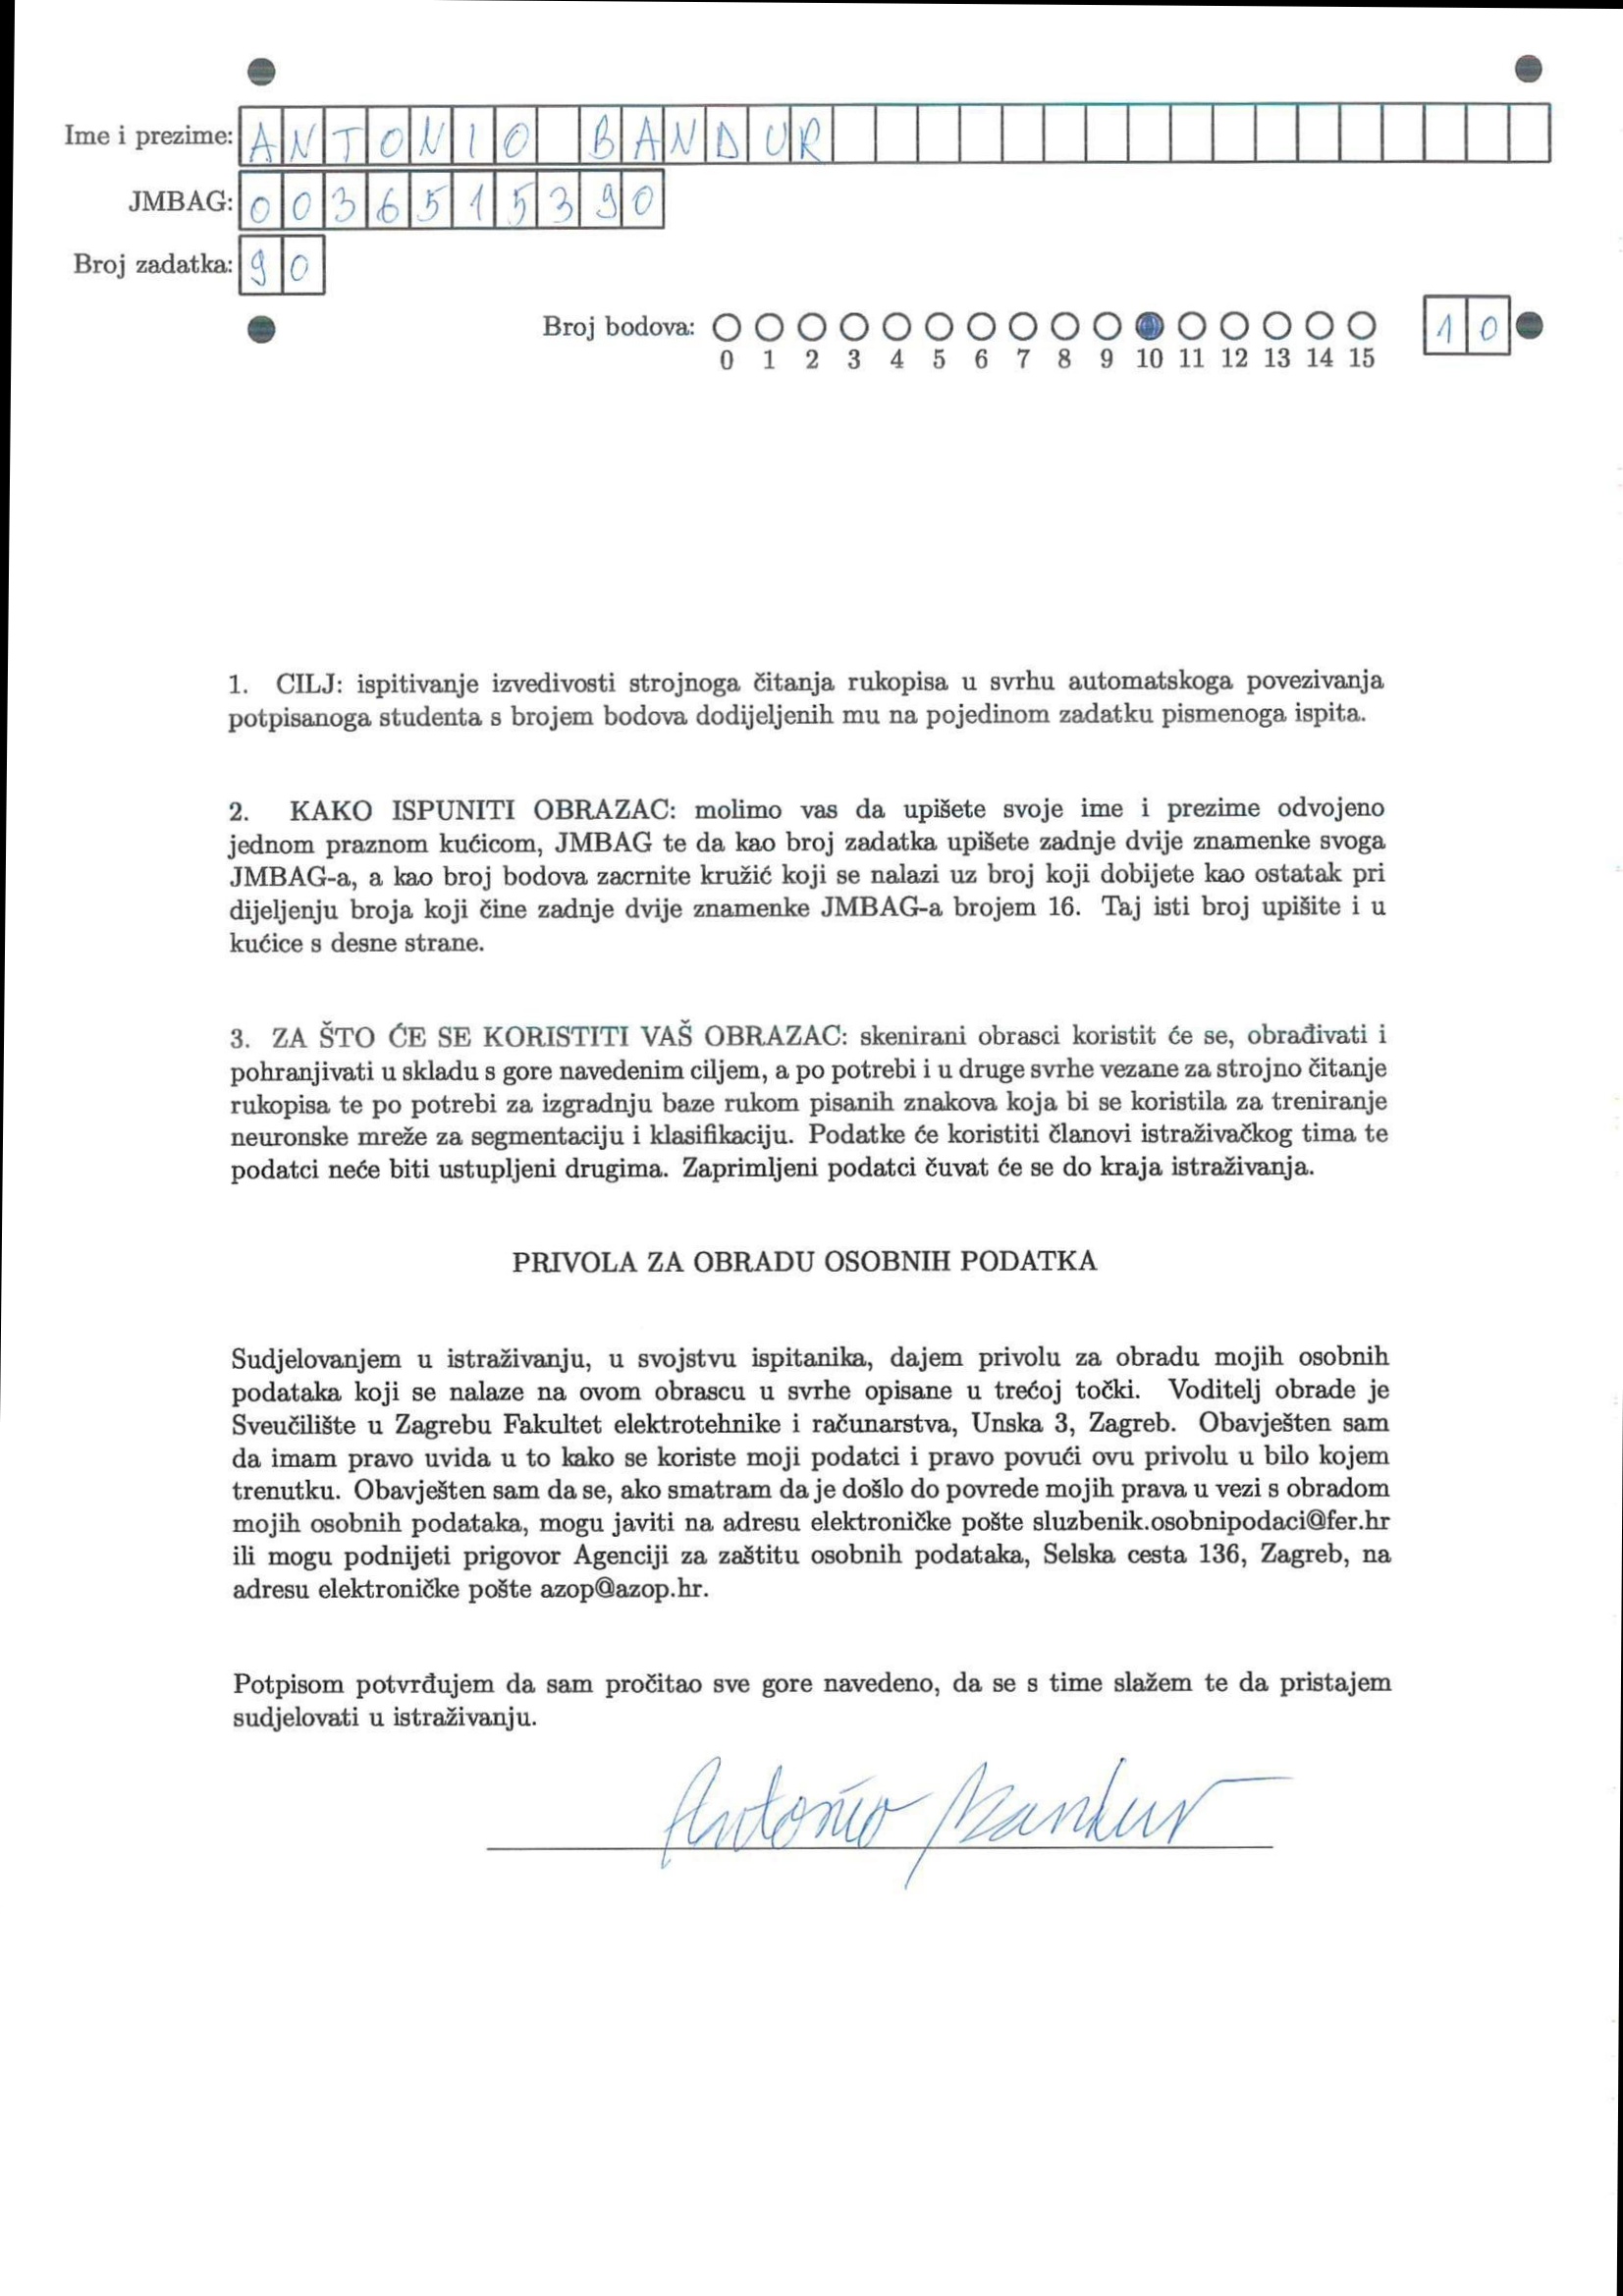 Ime i prezime: ANTONIO BANDUR
JMBAG: 0036515390
Broj zadatka: 90
Broj bodova: 10
0 1 2 3 4 5 6 7 8 9 10 11 12 13 14 15
1. CILJ: ispitivanje izvedivosti strojnoga čitanja rukopisa u svrhu automatskoga povezivanja
potpisanoga studenta s brojem bodova dodijeljenih mu na pojedinom zadatku pismenoga ispita.
2. KAKO ISPUNITI OBRAZAC: molimo vas da upišete svoje ime i prezime odvojeno
jednom praznom kućicom, JMBAG te da kao broj zadatka upišete zadnje dvije znamenke svoga
JMBAG-a, a kao broj bodova zacrnite kružić koji se nalazi uz broj koji dobijete kao ostatak pri
dijeljenju broja koji čine zadnje dvije znamenke JMBAG-a brojem 16. Taj isti broj upišite i u
kućice s desne strane.
3. ZA ŠTO ĆE SE KORISTITI VAŠ OBRAZAC: skenirani obrasci koristit će se, obrađivati i
pohranjivati u skladu s gore navedenim ciljem, a po potrebi i u druge svrhe vezane za strojno čitanje
rukopisa te po potrebi za izgradnju baze rukom pisanih znakova koja bi se koristila za treniranje
neuronske mreže za segmentaciju i klasifikaciju. Podatke će koristiti članovi istraživačkog tima te
podatci neće biti ustupljeni drugima. Zaprimljeni podatci čuvat će se do kraja istraživanja.
PRIVOLA ZA OBRADU OSOBNIH PODATKA
Sudjelovanjem u istraživanju, u svojstvu ispitanika, dajem privolu za obradu mojih osobnih
podataka koji se nalaze na ovom obrascu u svrhe opisane u trećoj točki. Voditelj obrade je
Sveučilište u Zagrebu Fakultet elektrotehnike i računarstva, Unska 3, Zagreb. Obavješten sam
da imam pravo uvida u to kako se koriste moji podatci i pravo povući ovu privolu u bilo kojem
trenutku. Obavješten sam da se, ako smatram da je došlo do povrede mojih prava u vezi s obradom
mojih osobnih podataka, mogu javiti na adresu elektroničke pošte sluzbenik.osobnipodaci@fer.hr
ili mogu podnijeti prigovor Agenciji za zaštitu osobnih podataka, Selska cesta 136, Zagreb, na
adresu elektroničke pošte azop@azop.hr.
Potpisom potvrđujem da sam pročitao sve gore navedeno, da se s time slažem te da pristajem
sudjelovati u istraživanju.
Antonio Bandur